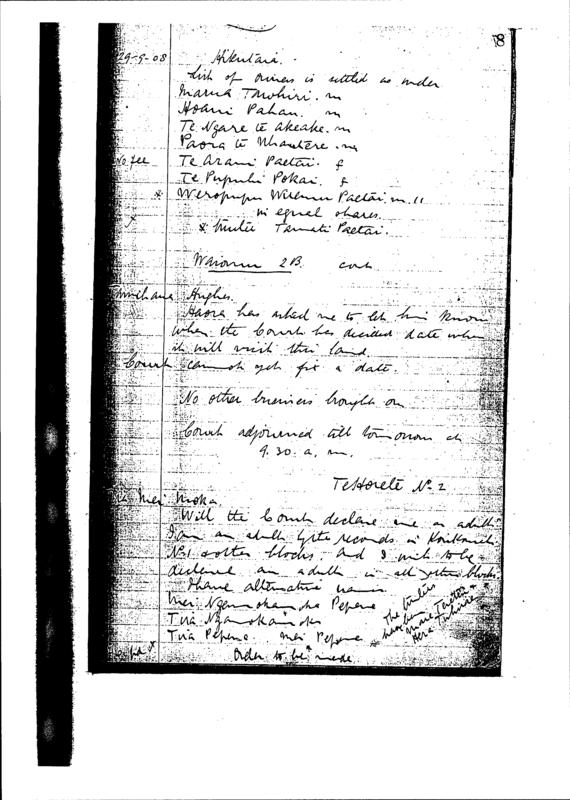 8
29-5-08 Hikutaia.
List of owners is settled as under
Maraea Tawhiri. m
Hoani Pahau. m
Te Ngare te Akeake. m
Paora te Whautere. m
No fee Te Arani Paetai. f
Te Pupuhi Pokai. f
* Weropupu Wiremu Paetai. m. 11
in equal shares.
* trustee Tamati Paetai.
2B. cont
Hughes.
Haora has asked me to let him know
when the Court has decided date when
it will visit this land.
Court cannot yet fix a date.
No other business brought on
Court adjourned till tomorrow at
9.30. a. m.
Te Horete No. 2
Mei Moka.
Will the Court declare me an adult.
I am an adult by the records in
No. 1 & other blocks. And I wish to be
declared an adult in all other blocks.
I have alternative names
Mei Pepene
Tua
Tua Pepene. Mei Pepene
Order to be made.
The trustees
have been